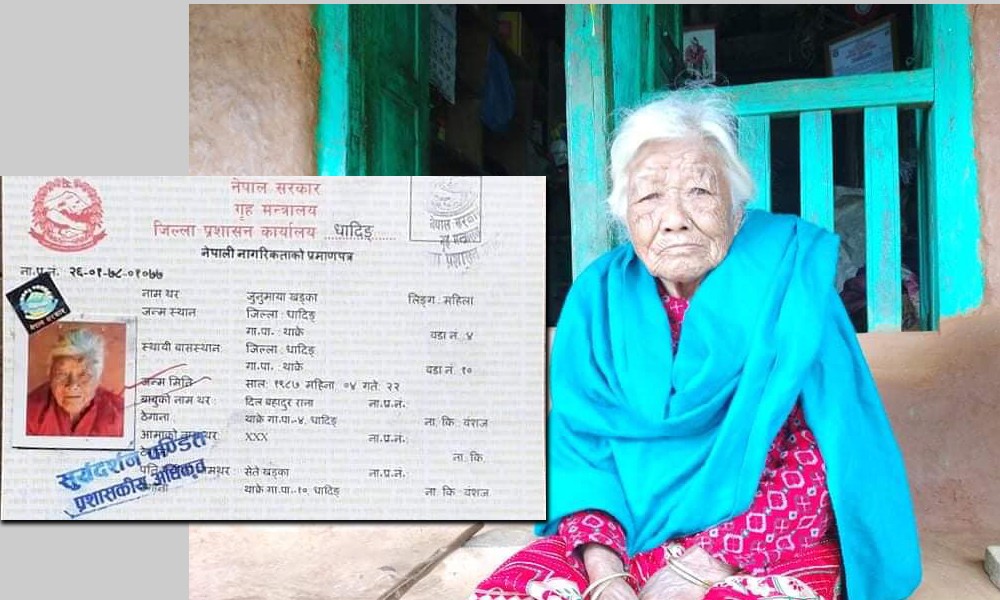 नेपाल सरकार
गृह मन्त्रालय
जिल्ला प्रशासन कार्यालय धादिङ्ग
नेपाली नागरिकताको प्रमाणपत्र
ना.प्र.नं. २६-०१-७८-०१०७७
नाम थर : जुनुमाया खड्का लिङ्ग : महिला
जन्म स्थान : जिल्ला : धादिङ्ग
गा.पा. : थाक्रे वडा नं. : ४
स्थायी बासस्थान : जिल्ला : धादिङ्ग
गा.पा. : थाक्रे वडा नं. : १०
जन्म मिति : साल: १९८७ महिना: ०४ गते: २२
बाबुको नाम थर : दिल बहादुर राना ना.प्र.नं.:
ठेगाना : थाक्रे गा.पा.-४, धादिङ्ग ना. कि.: वंशज
आमाको थर: XXX ना.प्र.नं.:
ना. कि.
सेते खड्का ना.प्र.नं.:
थाक्रे गा.पा.-१०, धादिङ्ग ना. कि.: वंशज
नेपाल सरकार
नेपाल सरकार
सुर्यदर्शन पण्डित
प्रशासकीय अधिकृत